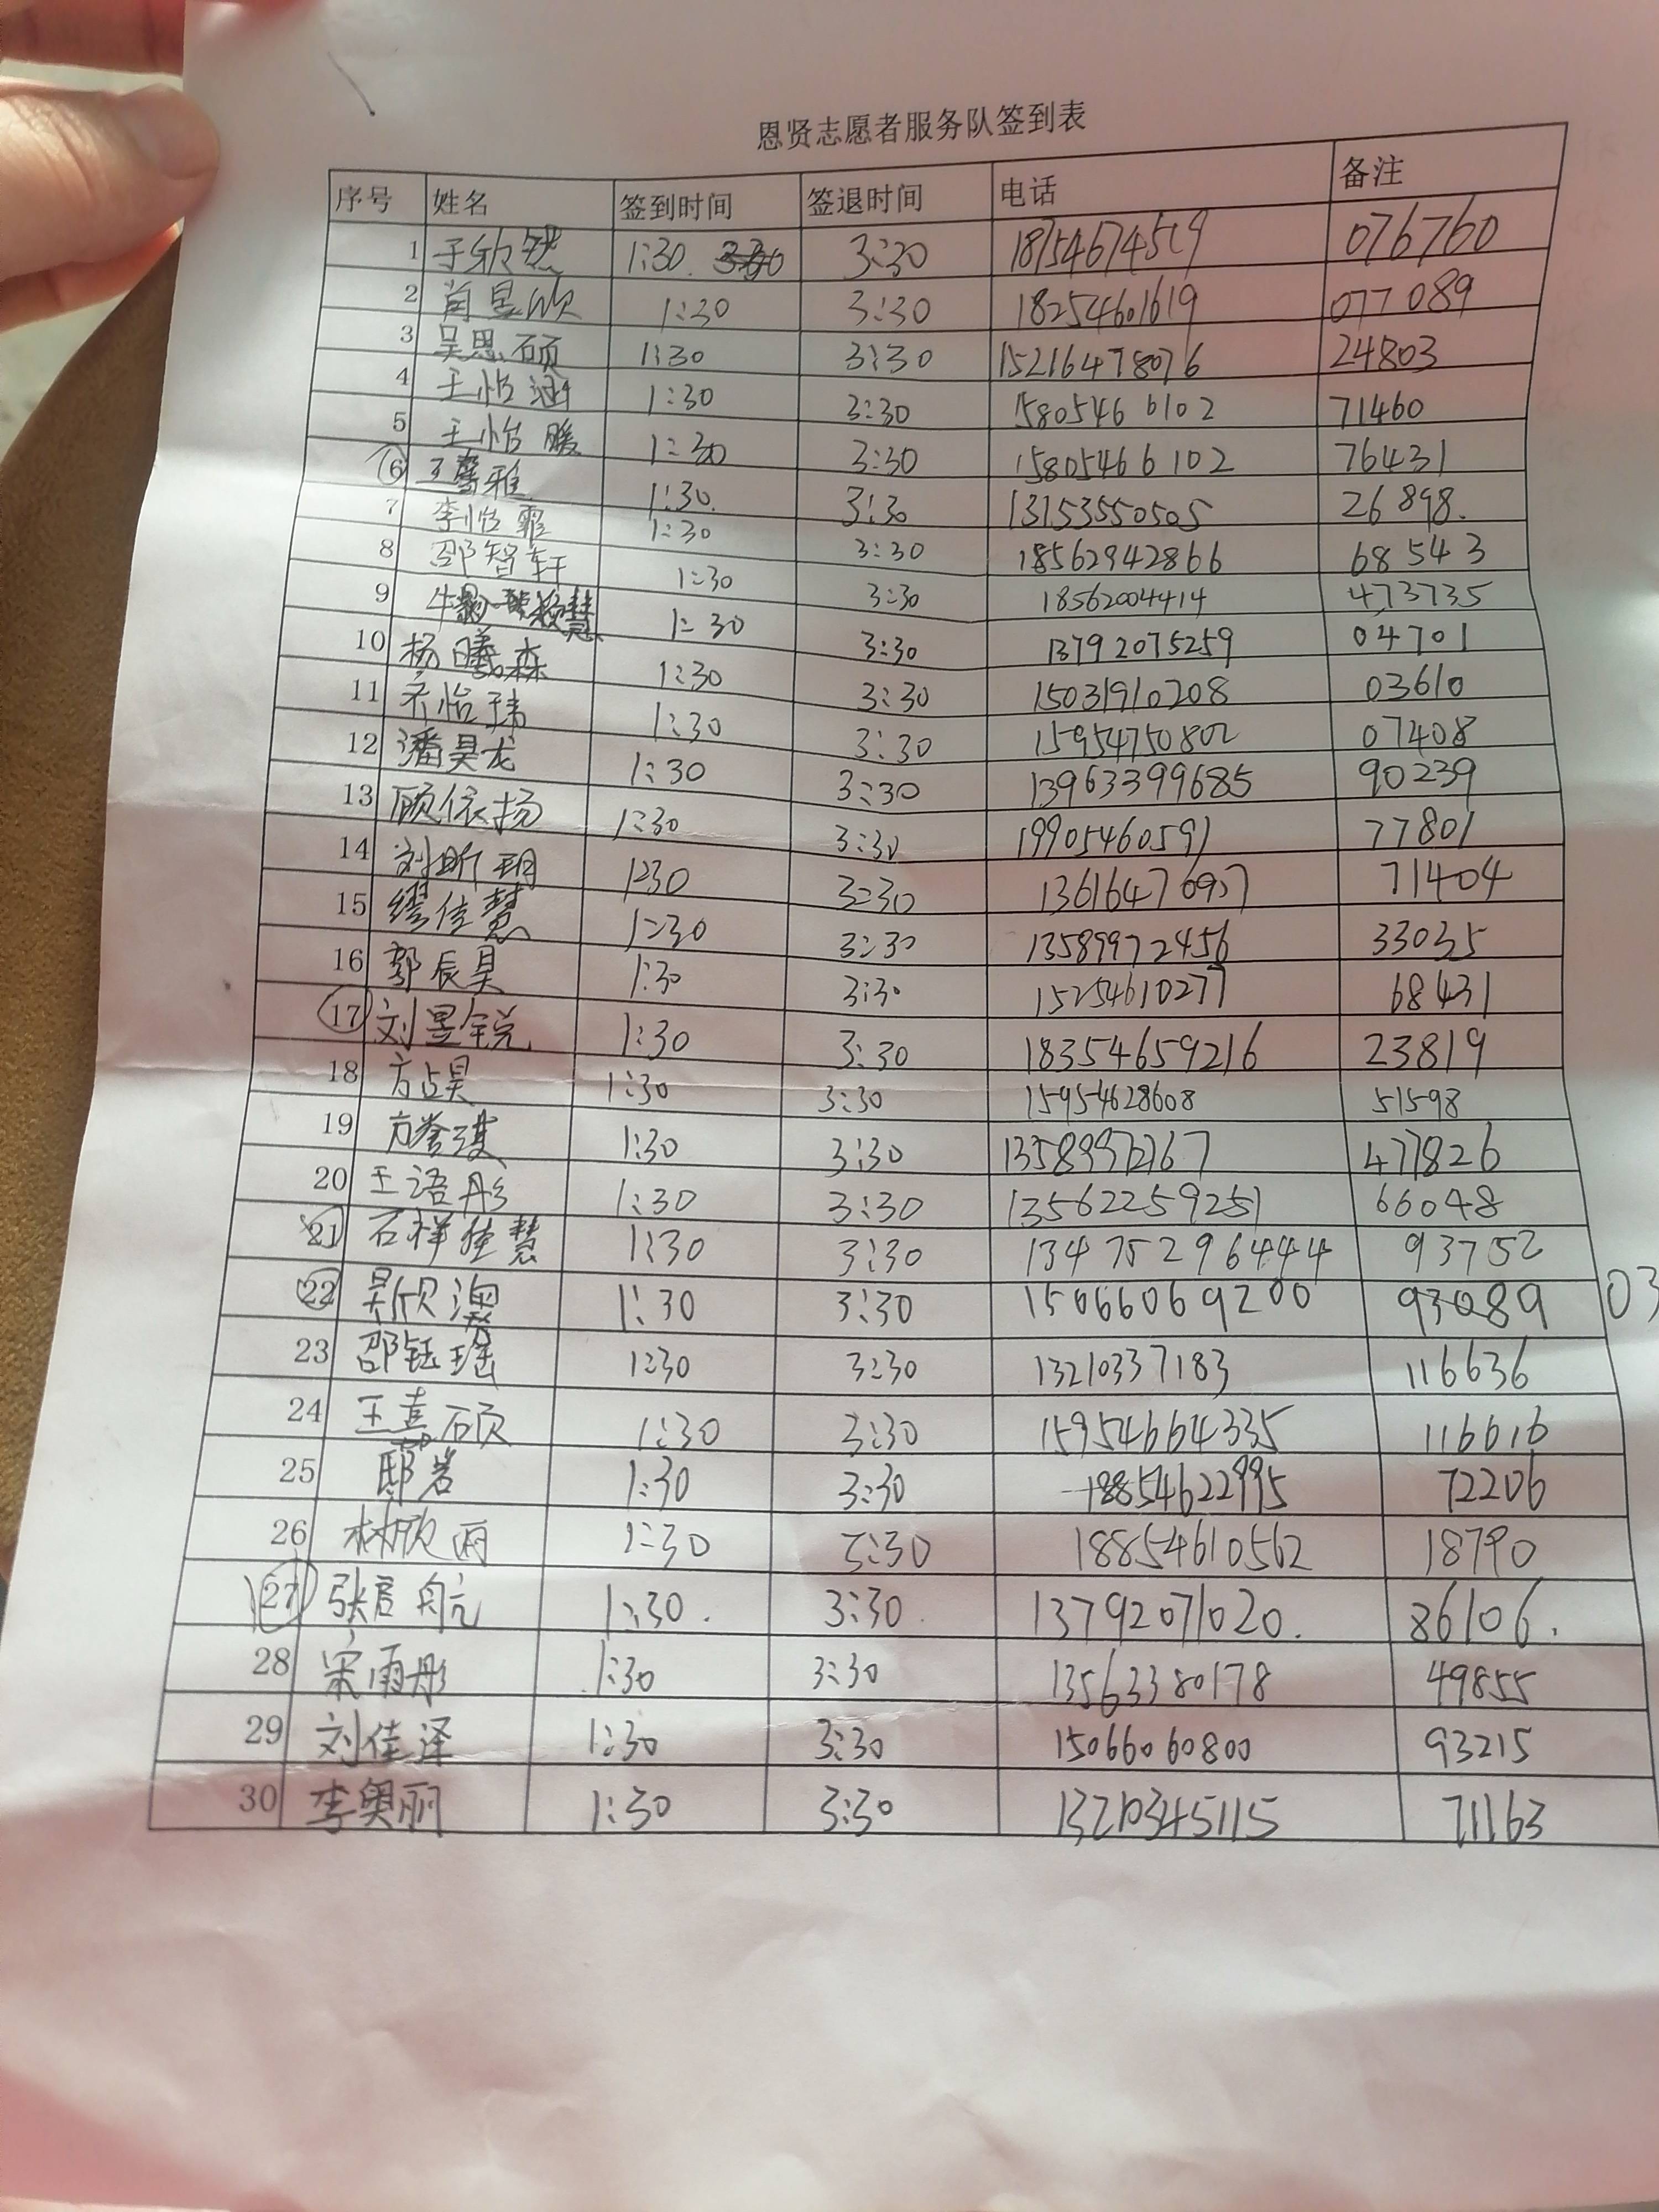 恩贤志愿者服务队签到表
序号 姓名 签到时间 签退时间 电话 备注
1 于欣 1:30 3:30 076760
2 肖昱欣 1:30 3:30 18254601619 077089
3 吴思硕 1:30 3:30 15216478076 24803
4 王怡涵 1:30 3:30 15805466102 71460
5 王怡暖 1:30 3:30 15805466102 76431
6 王馨雅 1:30 3:30 13153550505 26898.
7 李怡霏 1:30 3:30 18562942866 68543
8 邵智轩 1:30 3:30 18562004414 473735
9 牛 慧 1:30 3:30 13792075259 04701
10 杨曦森 1:30 3:30 15031910208 03610
11 乔怡玮 1:30 3:30 15954750802 07408
12 潘昊龙 1:30 3:30 13963399685 90239
13 顾依扬 1:30 3:30 19905460591 77801
14 刘昕玥 1:30 3:30 71404
15 缪佳慧 1:30 3:30 13589972456 33035
16 郭辰昊 1:30 3:30 15254610277 68431
17 刘昱锐 1:30 3:30 18354659216 23819
18 方占昊 1:30 3:30 15954628608 51598
19 方誉琪 1:30 3:30 477826
20 王语彤 1:30 3:30 13562259251 66048
21 石祥佳慧 1:30 3:30 13475296444 93752
22 吴欣澳 1:30 3:30 15066069200 93089 03
23 邵钰瑶 1:30 3:30 13210337183 116636
24 王嘉硕 1:30 3:30 15954664335 116616
25 邸岩 1:30 3:30 18854622995 72206
26 林欣雨 1:30 3:30 18854610562 18790
27 张君航 1:30. 3:30. 13792071020. 86106.
28 宋雨彤 1:30 3:30 13563380178 49855
29 刘佳泽 1:30 3:30 15066060800 93215
30 李奥丽 1:30 3:30 13210345115 71163